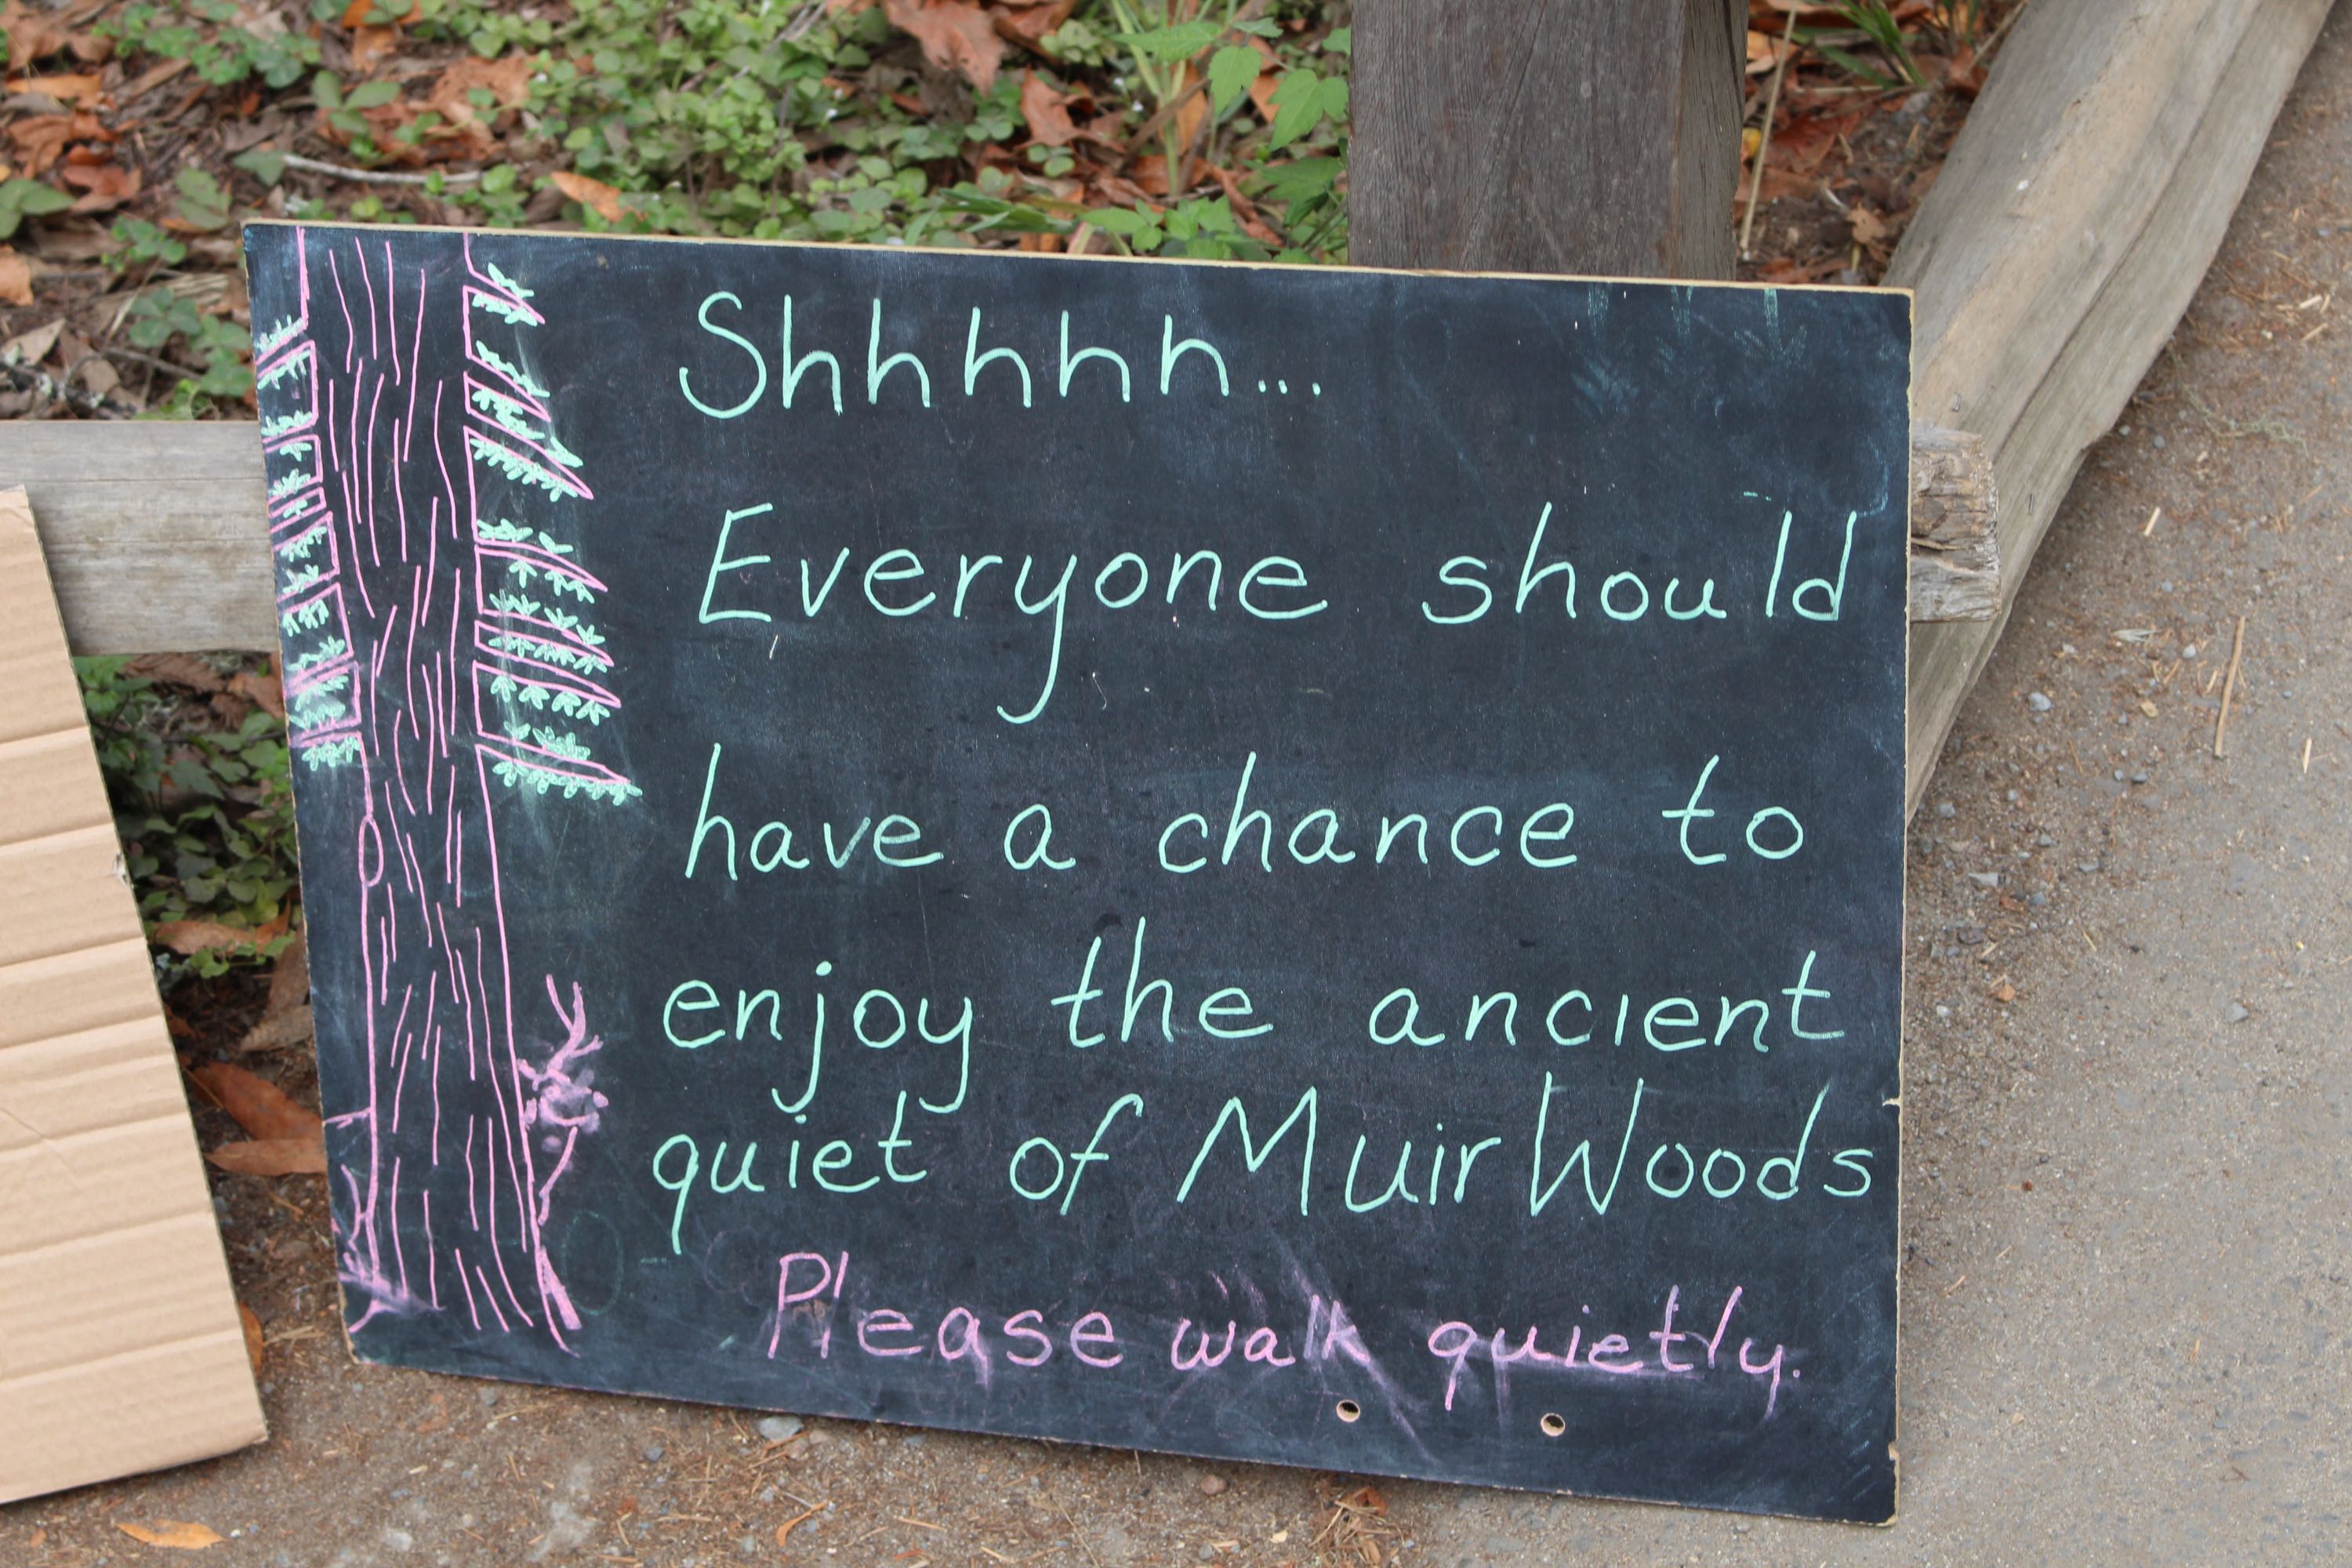 Shhhhh...
Everyone should
have a chance to
enjoy the ancient
quiet of Muir Woods
Please walk quietly.